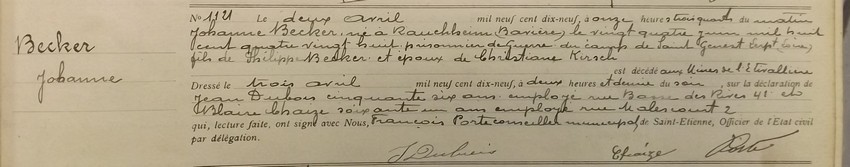 Becker
Johanne
No 1121 Le deux avril mil neuf cent dix-neuf, à onze heures trois quarts du matin
Johanne Becker né à Rauchheim Bavière, le vingt quatre juin mil huit
cent quatre vingt huit prisonnier de guerre du camps de Saint Genest Lerpt Loire,
fils de Philippe Becker et époux de Christiane Kirsch
est décédé aux Mines de l'Etivallière
Dressé le trois avril mil neuf cent dix-neuf, à deux heures et demie du soir, sur la déclaration de
Jean Dubois cinquante six ans employé rue Basse des Rives 41 et
Blaise Chaize soixante un ans employé rue Malescourt 2
qui, lecture faite, ont signé avec Nous, François Porte conseiller municipal, de Saint-Etienne, Officier de l'Etat civil
par délégation.
J Dubois Chaize Porte